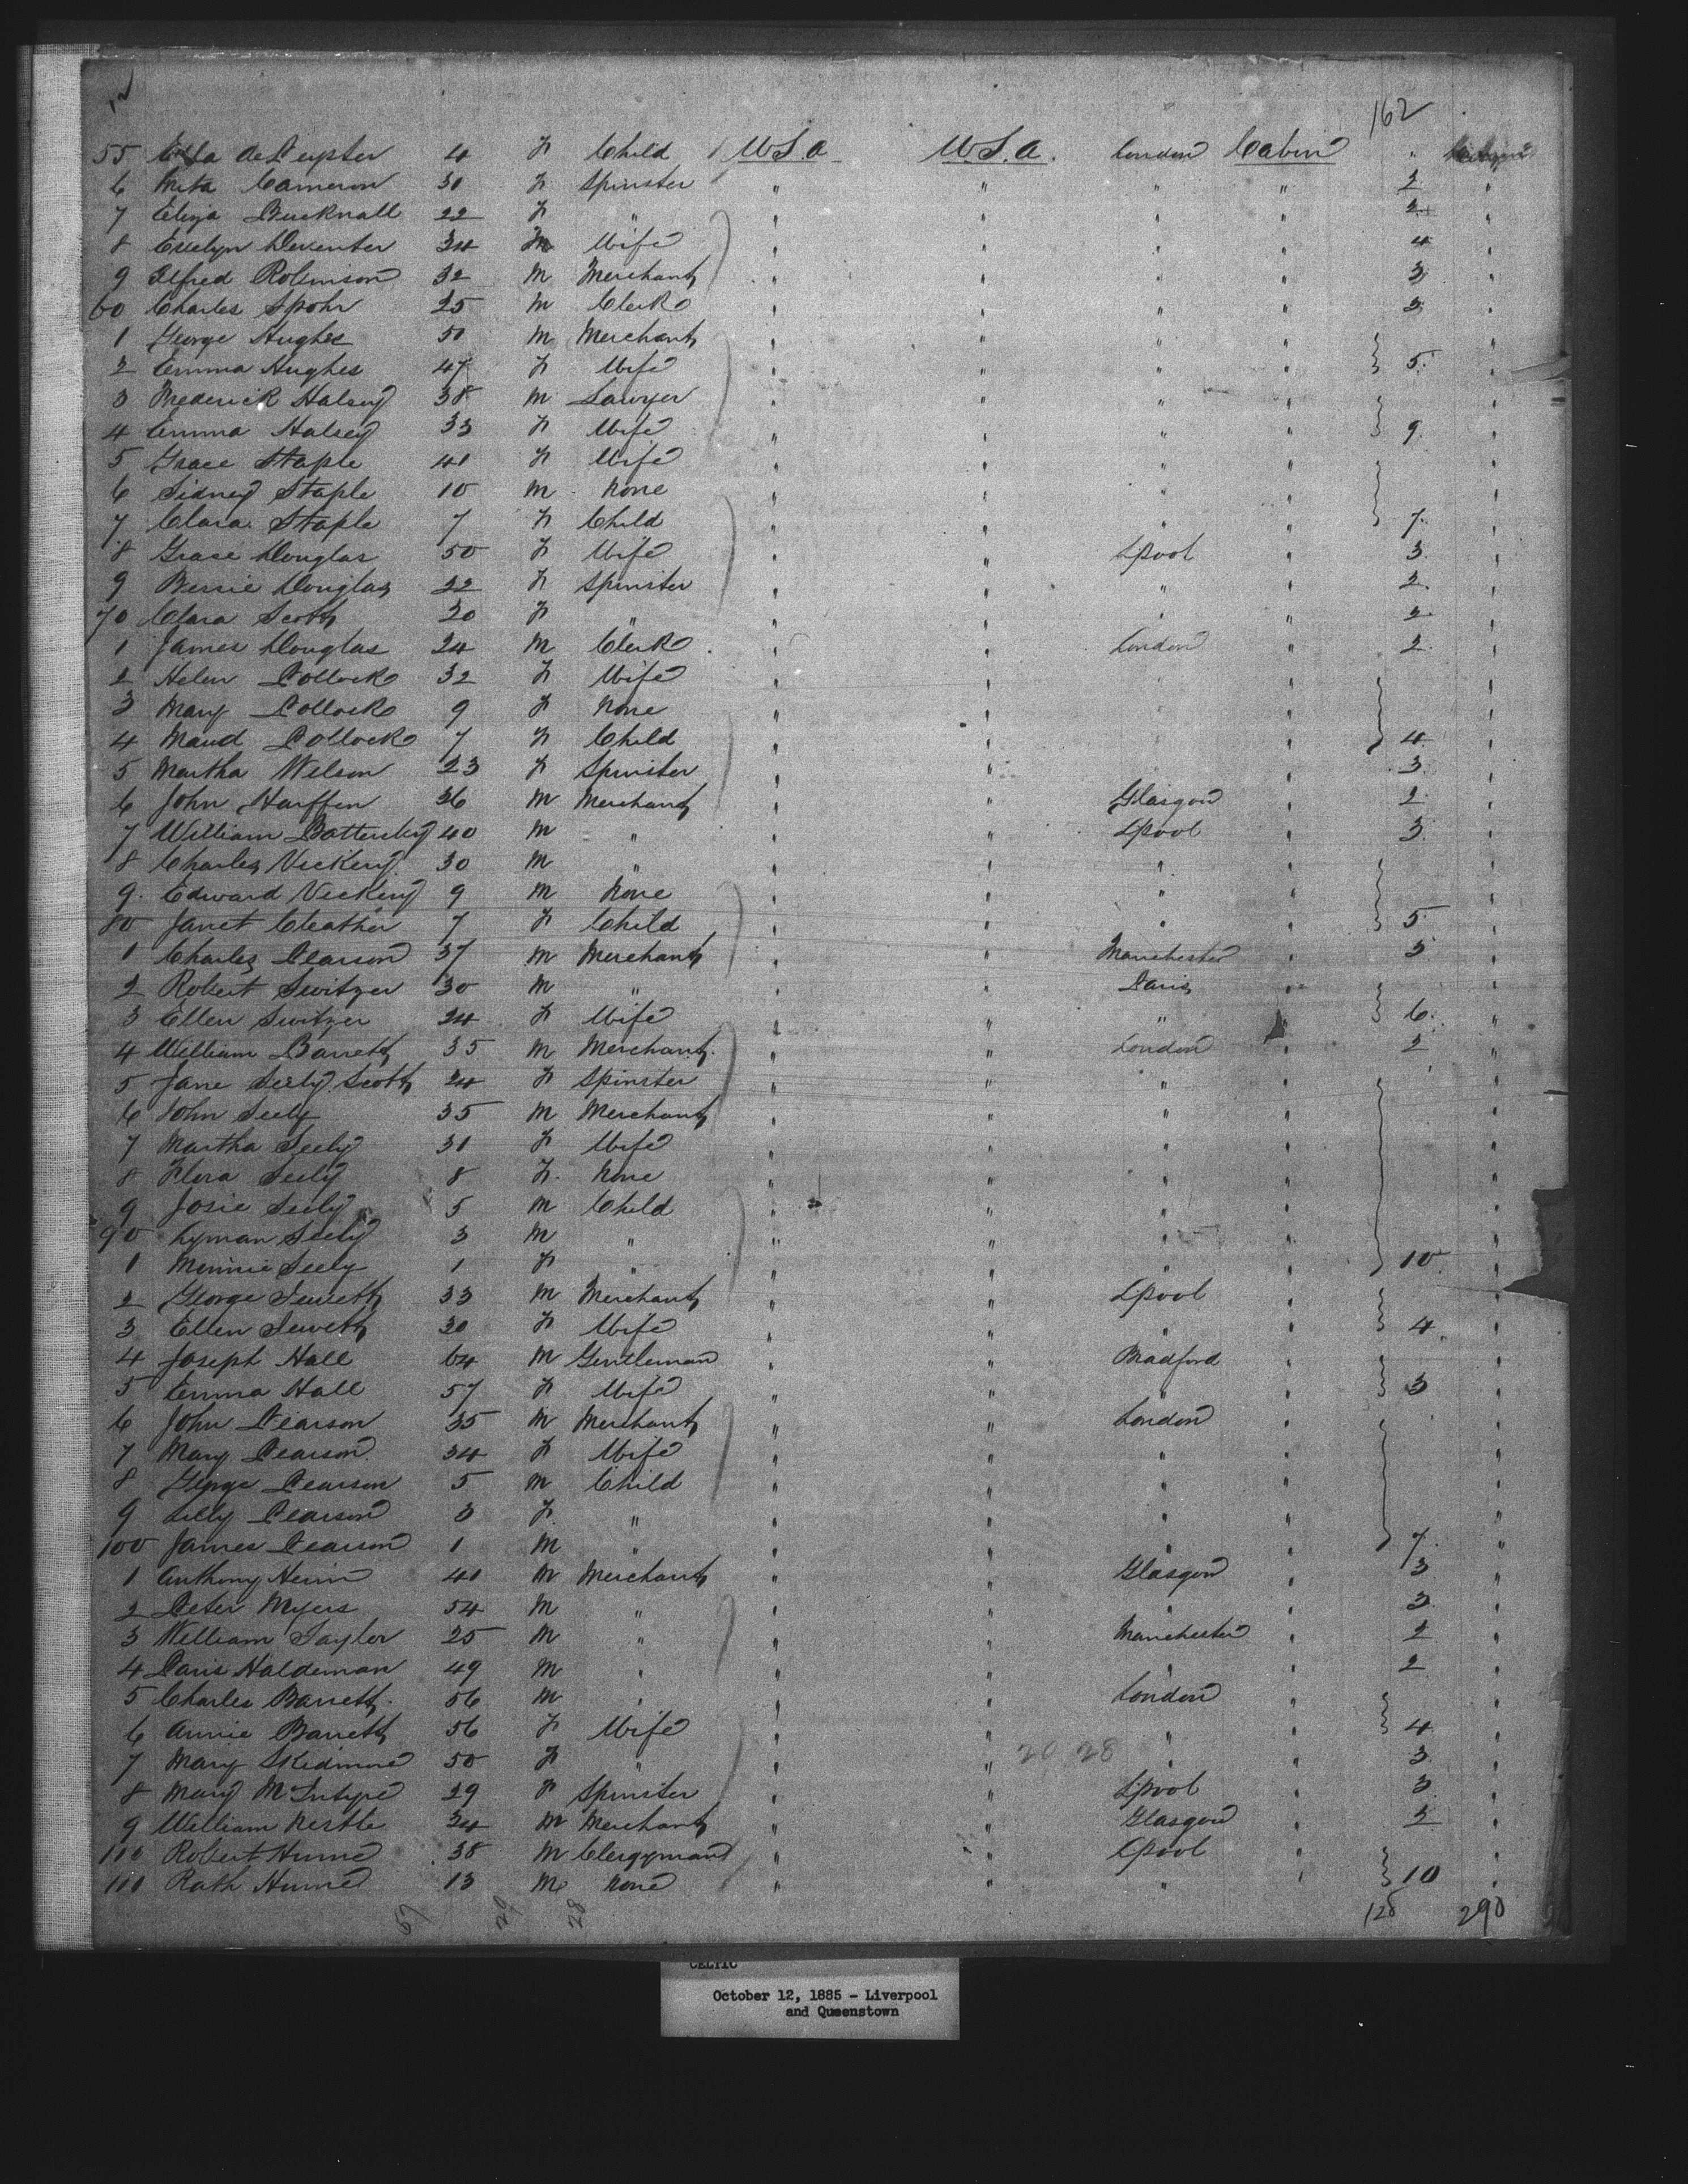 162
55 Ella de Peyster 4 F Child U.S.a U.S.a. London Cabin "
6 Meta Cameron 30 F Spinster " " " " 2 "
7 Eliza Bucknall 22 F " " " " " 2 "
8 Evelyn Deventer 34 Wife " " " " 4 "
9 Alfred Robinson 32 M Merchant " " " " 3 "
60 Charles Spohr 25 M Clerk " " " " 3 "
1 George Hughes 50 M Merchant " " " " "
2 Emma Hughes 47 F Wife " " " " 5 "
3 Frederick Halsey 38 M Lawyer " " " " "
4 Emma Halsey 33 F Wife " " " " 9 "
5 Grace Staple 41 F Wife " " " " "
6 Sidney Staple 10 M None " " " " "
7 Clara Staple 7 F Child " " " " 7 "
8 Grace Douglas 50 F Wife " " Lpool " 3 "
9 Bessie Douglas 22 F Spinster " " " " 2 "
70 Clara Scott 20 F " " " " " 2 "
1 James Douglas 24 M Clerk " " London " 2 "
2 Helen Pollock 32 F Wife " " " " "
3 Mary Pollock 9 F None " " " " "
4 Maud Pollock 7 F Child " " " " 4 "
5 Martha Wilson 23 F Spinster " " " " 3 "
6 John Harffen 36 M Merchant " " Glasgow " 2 "
7 William Battersby 40 M " " " Lpool " 3 "
8 Charles Vickery 30 M " " " " " "
9 Edward Vickery 9 M None " " " " "
80 Janet Cleather 7 F Child " " " " 5 "
1 Charles Pearson 37 M Merchant " " Manchester " 3 "
2 Robert Switzer 30 M " " " Paris " "
3 Ellen Switzer 24 F Wife " " " " 6 "
4 William Barrett 35 M Merchant " " London " 2 "
5 Jane Seely Scott 24 F Spinster " " " " "
6 John Seely 35 M Merchant " " " " "
7 Martha Seely 31 F Wife " " " " "
8 Flora Seely 8 F None " " " " "
9 Josie Seely 5 M Child " " " " "
90 Lyman Seely 3 M " " " " " "
1 Minnie Seely 1 F " " " " " 10 "
2 George Jewett 33 M Merchant " " Lpool " "
3 Ellen Jewett 30 F Wife " " " " 4 "
4 Joseph Hall 64 M Gentleman " " Bradford " "
5 Emma Hall 57 F Wife " " " " 3 "
6 John Pearson 35 M Merchant " " London " "
7 Mary Pearson 34 F Wife " " " " "
8 George Pearson 5 M Child " " " " "
9 Lilly Pearson 3 F " " " " " "
100 James Pearson 1 M " " " " " 7 "
1 Anthony 41 M Merchant " " Glasgow " 3 "
2 Peter Myers 54 M " " " " " 3 "
3 William Taylor 25 M " " " Manchester " 2 "
4 Paris Haldeman 49 M " " " " " 2 "
5 Charles Barrett 56 M " " " London " "
6 Annie Barrett 56 F Wife " " " " 4 "
7 Mary Skidmore 50 F " " " 20 28 " " 3 "
8 Mary McIntyre 29 F Spinster " " Lpool " 3 "
9 William Nestle 34 M Merchant " " Glasgow " 2 "
110 Robert Hume 38 M Clergyman " " Lpool "
Hume 13 M None " " " " 10 "
57 29 28 128 290
CELTIC
October 12, 1885 - Liverpool
and Queenstown